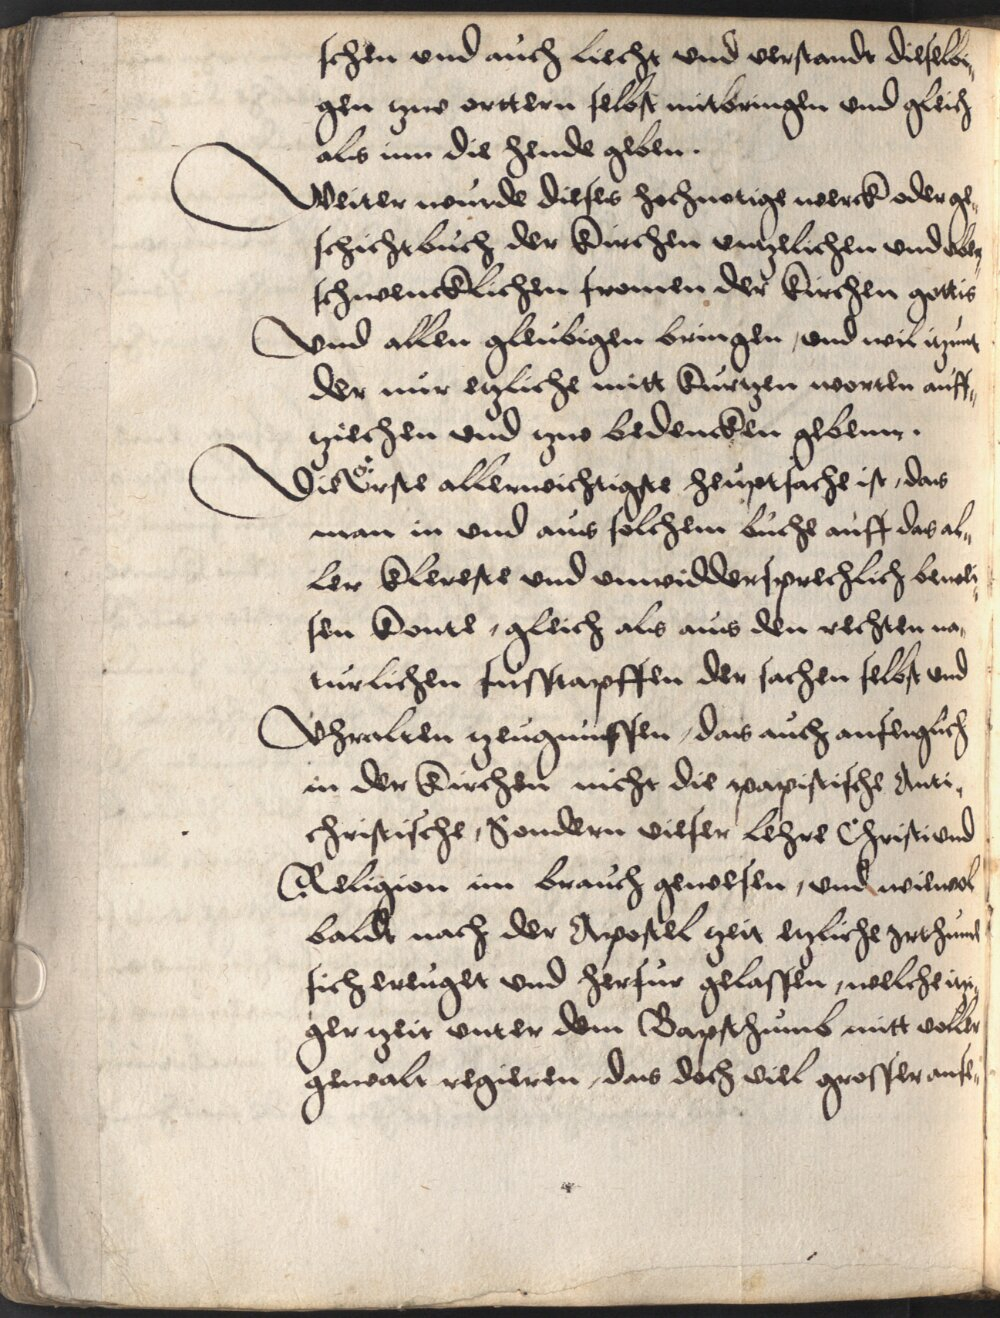 schen und auch liecht und verstandt dieselbi-
gen zwo orttern selbst mitbringen und gleich
als inn die hende geben.
Weiter wurde dieses hochnotige werck oder ge-
schichtbuch der Kirchen unzelichen und uber-
schwencklichen fromen der Kirchen gottis
Und allen gleubigen bringen, und wil itzunt
der nur etzliche mitt kurtzen worten auff-
ziechen und zwo bedencken gebenn.
Die Erste allerwichtigste heuptsache ist, das
man in und aus solchem buche auff das al-
ler klereste und unwiddersprechlich bewei-
sen konte, gleich als aus den rechten na-
turlichen fusstapffen der sachen selbst und
Uhralten zeugnussen, das auch anfenglich
in der Kirchen nicht die papistische Anti-
christische, Sondern dieser lehre Christi und
Religion im brauch gewesen, und wiewol
baldt nach der Apostel zeit etzliche irthume
sich ereuget und herfur gelassen, welche itzi-
ger zeit unter dem Bapsthumb mitt voller
gewalt regieren, das doch viel grosser anse-